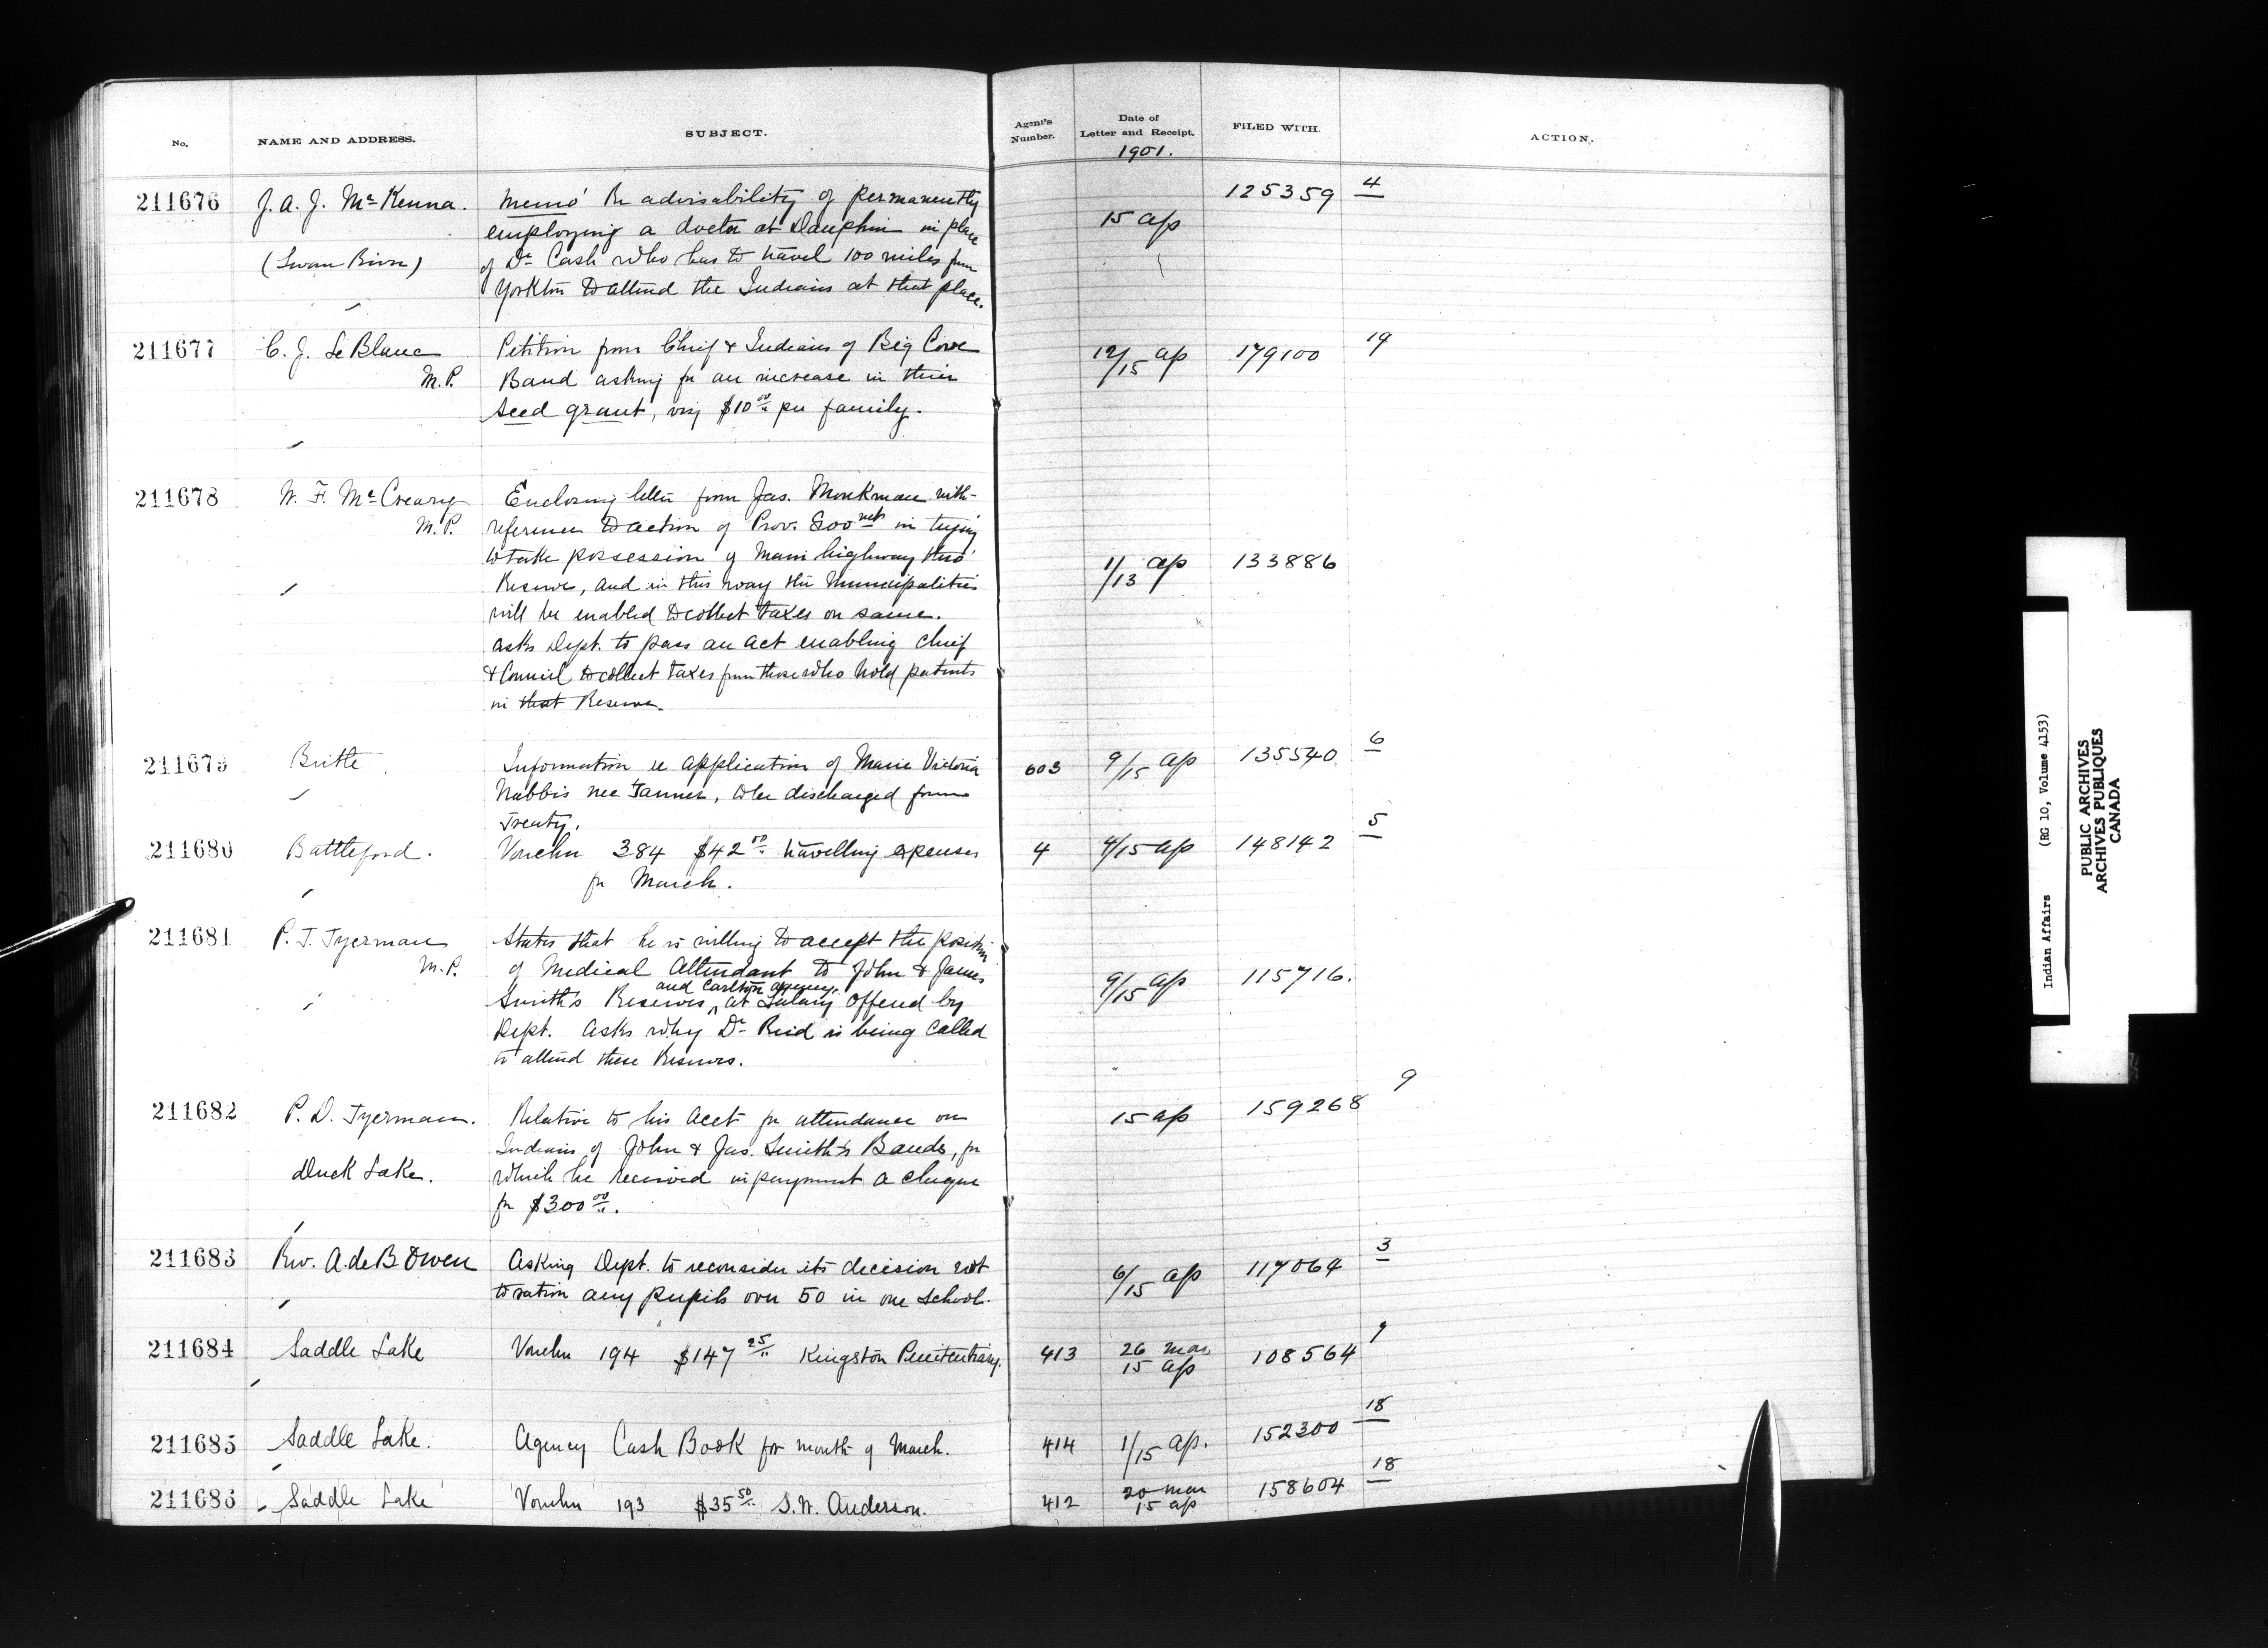 No. NAME AND ADDRESS. SUBJECT. Agent's Number. Date of Letter and Receipt. FILED WITH. ACTION.
1901.
211676 J. A. J. McKenna. Memo' Re advisability of permanently 125359 4
employing a doctor at Dauphin in place 15 ap
(Swan River) of Dr Cash who has to travel 100 miles from
Yorkton to attend the Indians at that place.
211677 C. J. LeBlanc Petition from Chief & Indians of Big Cove 12/15 ap 179100 19
M.P. Band asking for an increase in their
seed grant, viz $10.00 per family.
211678 W. F. McCreary Enclosing letter from Jas. Monkman with
M.P. reference to action of Prov. Govnet in trying
to take possession of main highway thro' 1/13 ap 133886
Reserve, and in this way the Municipalities
will be enabled to collect taxes on same.
asks Dept. to pass an act enabling Chief
& Council to collect taxes from those who hold patents
in that Reserve.
211679 Birtle Information re application of Marie Victoria 603 9/15 ap 135540 6
Nabbis nee Tanner, to be discharged from
Treaty.
211680 Battleford. Voucher 384 $42.50 travelling expenses 4 4/15 ap 148142 5
for March.
211681 P. T. Tyerman States that he is willing to accept the position
M.P. of Medical Attendant to John & James 9/15 ap 115716.
and Carlton agency.
Smith's Reserves, at Salary offered by
Dept. Asks why Dr Reid is being called
to attend these Reserves.
211682 P. D. Tyerman. Relative to his acct for attendance on 15 ap 159268 9
Indians of John & Jas. Smith's Bands, for
Duck Lake. which he received in payment a cheque
for $300.00.
211683 Rev. A. de B. Owen Asking Dept. to reconsider its decision not 6/15 ap 117064 3
to ration any pupils over 50 in one school.
211684 Saddle Lake Voucher 194 $147.25 Kingston Penitentiary. 413 26 mar 15 ap 108564 9
211685 Saddle Lake. Agency Cash Book for month of March. 414 1/15 ap. 152300 18
211686 Saddle Lake Voucher 193 $35.50 S. W. Anderson. 412 20 mar 15 ap 158604 18
Indian Affairs (RG 10, Volume 4153)
PUBLIC ARCHIVES
ARCHIVES PUBLIQUES
CANADA